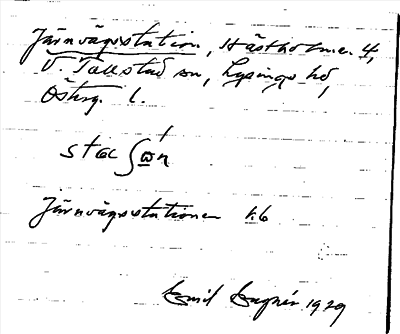 Järnvägsstation, Hästholmen 4,
V. Tollstad sn, Lysings hd,
Österg. l.
staʃɷ́n
Järnvägsstationen k6
Emil 1929